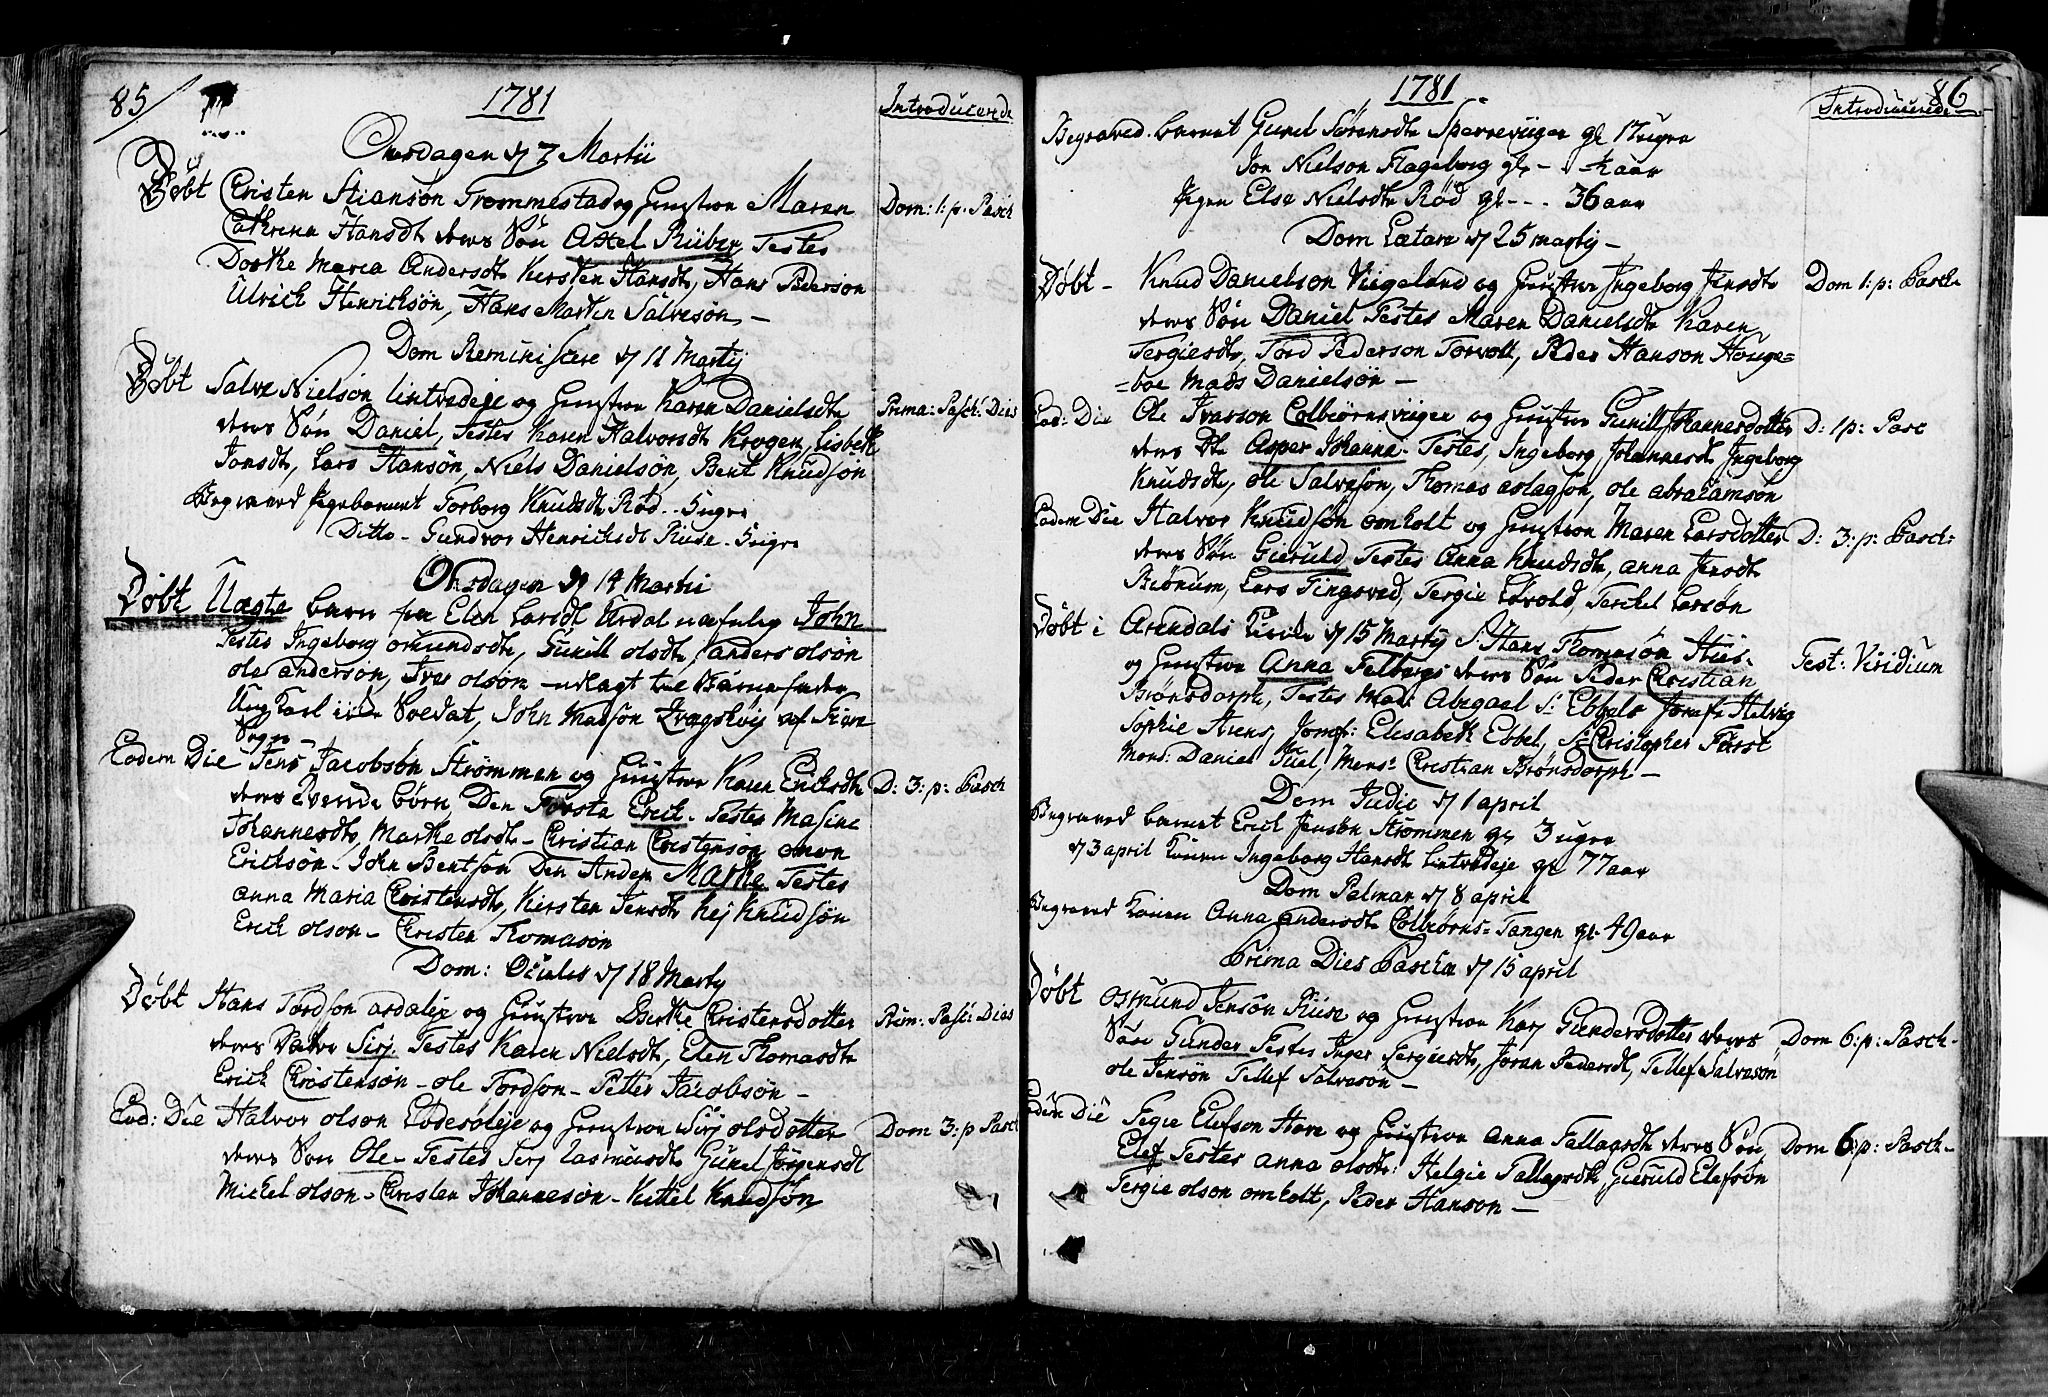 85
1781
Introducerede
Onsdagen d 7 Martii
Døbt Cristen Stianson Frommestad og Hustrue Maren Dom: 1: p. Pasch
Cathrina Hansdt deres Søn Axel Ruber Testes
Dorthe Maria Andersdt Kirsten Hansdt, Hans Pederson
Ulrich Henrichsøn, Hans Martin Salvesøn, —
Dom Reminiscere d 11 Martij
Døbt Salve Nielson lintvedeje og Hustrue Karen Danielsdtr Prima: Pasch: Dies
deres Søn Daniel, Testes Karen Halvorsdt Krogen, Lisbeth
Jonsdt, Lars Hansøn, Niels Danielsøn, Bent Knudsøn
Begraved Pigebarnet Torborg Knudsdt Rød.. 5 uger
Ditto - Gundvor Henrichsdt Ruse. 5 uger
Onsdagen d 14 Martii
Døbt Uægte barn fra Elen Larsdt Urdal nafnlig John
Testes Ingeborg omundsdt, Gunill olsdt, anders olsøn
ole anderson, Iver olson - udlagt til Barnefader
Ung Karl iide Soldat, John Madson af
Sogn -
Eodem Die Jens Jacobsøn Strømmen og Hustrue Karen Ericksdt D: 3: p: Pasch
deres Tvende børn Den Første Erich. Testes Masine
Johannesdt, Marthe olsdt - Christian Christensøn omon
Erichsøn. John Bentsøn Den Anden Marthe Testes
anna Maria Christensdt, Kirsten Jensdt Kej Knudsøn
Erich olson - Christen Thomasøn
Dom: Oculi d 18 Marty
Døbt Hans Tordson asdaleje og Hustrue Berthe Christensdotter Prim: Pasc: Dies
deres Datter Sirj. Testes Karen Nielsdt, Elen Thomasdt
Erich Christensøn - ole Tordson - Petter Jacobsøn -
Eod: Die Halvor olson Eodesøleje og Hustrue Sirj olsdotter Dom 3: p Pasch
deres Søn Ole - Testes Sirj Rasmusdt Gunel Jørgensdt
Mickel olson - Christen Johannesøn - Kittel Knudsøn
1781
86
Introducerede
Begraved. barnet Gunel Sørensdt Sperreviigen gl 17 uger
Jon Nielson Flageborg gl - ½ aar
Pigen Else Nielsdt Rød gl - - . 36 aar
Dom Lætare d 25 martij -
Døbt - Knud Danielson Viigeland og Hustrue Ingeborg Jensdt Dom 1: p: Pasch
deres Søn Daniel Testes Maren Danielsdt Karen
Tergiesdt, Tord Pederson Torvolt, Peder Hanson Houge=
=boe Mads Danielsøn —
Eod: Die Ole Ivarson Colbiørnsviigen og Hustrue Gunill Johannesdotter D: 1 p: Pasc
deres Dt Asper Johanna. Testes, Ingeborg Johannesdt Ingeborg
Knudsdt, ole Salvesøn, Thomas aslagson, ole abrahamson
Eodem Die Halvor Knudsøn omholt og Hustrue Maren Larsdotter D: 3: p: Pasch:
deres Søn Gieruld Testes Anna Knudsdt, anna Jensdt
Biønum, Lars Tingsved, Tergie Løvold, Terchel Larsøn
Døbt i Arendals Kirke d 15 Martij Sr. Hans Thomasøn
og Hustrue Anna Felberg deres Søn Peder Christian Fest: Viridium
Brønsdorph, Testes Mad: Abegael Sr Ebbels Jomfr Helvig
Sophie Arens, Jomfr: Elisabeth Ebbel, Sr Christopher Fürst
Mons: Daniel Juel, Mons: Christian Brønsdorph —
Dom Judic d 1 april
Begraved barnet Erich Jensøn Strømmen gl 3 uger
d 3 april Konen Ingeborg Hansdt Lintvedeje gl 77 aar
Dom Palmar d 8 april
Begraved Konen Anna andersdt Colbiørns=Tangen gl. 49 aar
Prima Dies Pascha d 15 april
Døbt osmund Jensøn Riise og Hustrue Karj Gundersdotter deres Dom 6: p: Pasch-
Søn Gunder Testes Inger Tergiesdt, Joran Pedersdt, Tellef Salvesøn
ole Jensøn Tellef Salvesøn —
Eodem Die Tegie Elefson Have og Hustrue anna Tallagsdt deres Søn Dom 6: p: Pasch-
Elef Testes anna olsdt. Helgie Tallagsdt, Gieruld Elefsøn
Tergie olson omholt, Peder Hanson —